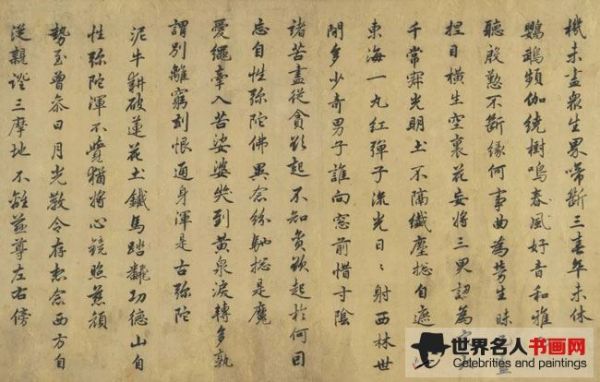 機未盡衆生界啼斷三春年未休
鸚鵡頻伽繞樹鳴春風好音和雅
聽殷懃不斷緣何事曲為勞生昧
捏目橫生空裏花妄將三界認為家
千常寂光明土不隔纖塵揔自遮
東海一丸紅彈子流光日〻射西林世
間多少奇男子誰向窓前惜寸陰
諸苦盡從貪欲起不知貪欲起於何因
忘自性彌陀佛異念紛馳揔是魔
愛繩牽入苦娑婆哭到黃泉淚轉多孰
謂別離窮劫恨通身渾是古彌陀
泥牛耕破蓮花土鐵馬踏飜功德山自
性彌陀渾不覺猶將心鏡照慈顏
勢至曾參日月光教令存想念西方自
從親證三摩地不離慈尊左右傍
世界名人书画网
Celebrities and paintings